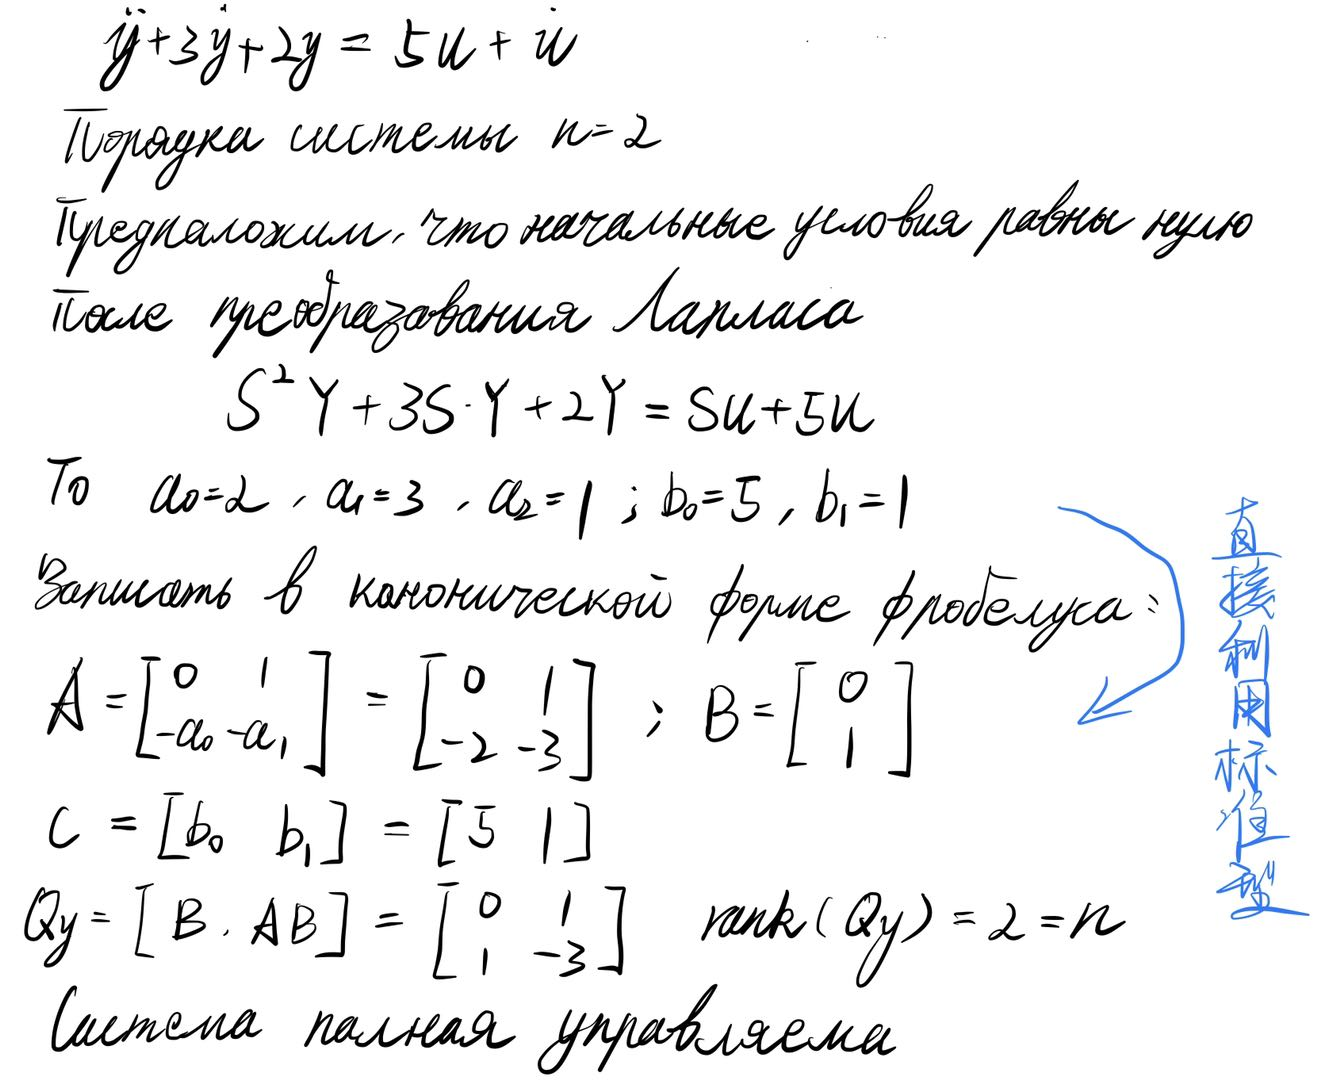 ÿ+3ẏ+2y = 5u + u̇
Порядка системы n=2
Предпаложим, что начальные условия равны нулю
После преобразавания Лапласа
S²Y+3S·Y+2Y = Su+5u
То a₀=2 , a₁=3 , a₂=1 ; b₀=5 , b₁=1
Записать в канонической форме фробелуса:
A = [0 1; -a₀ -a₁] = [0 1; -2 -3] ; B = [0; 1]
C = [b₀ b₁] = [5 1]
Qy = [B . AB] = [0 1; 1 -3] rank(Qy) = 2 = n
Система палная управляема
直接利用标准型